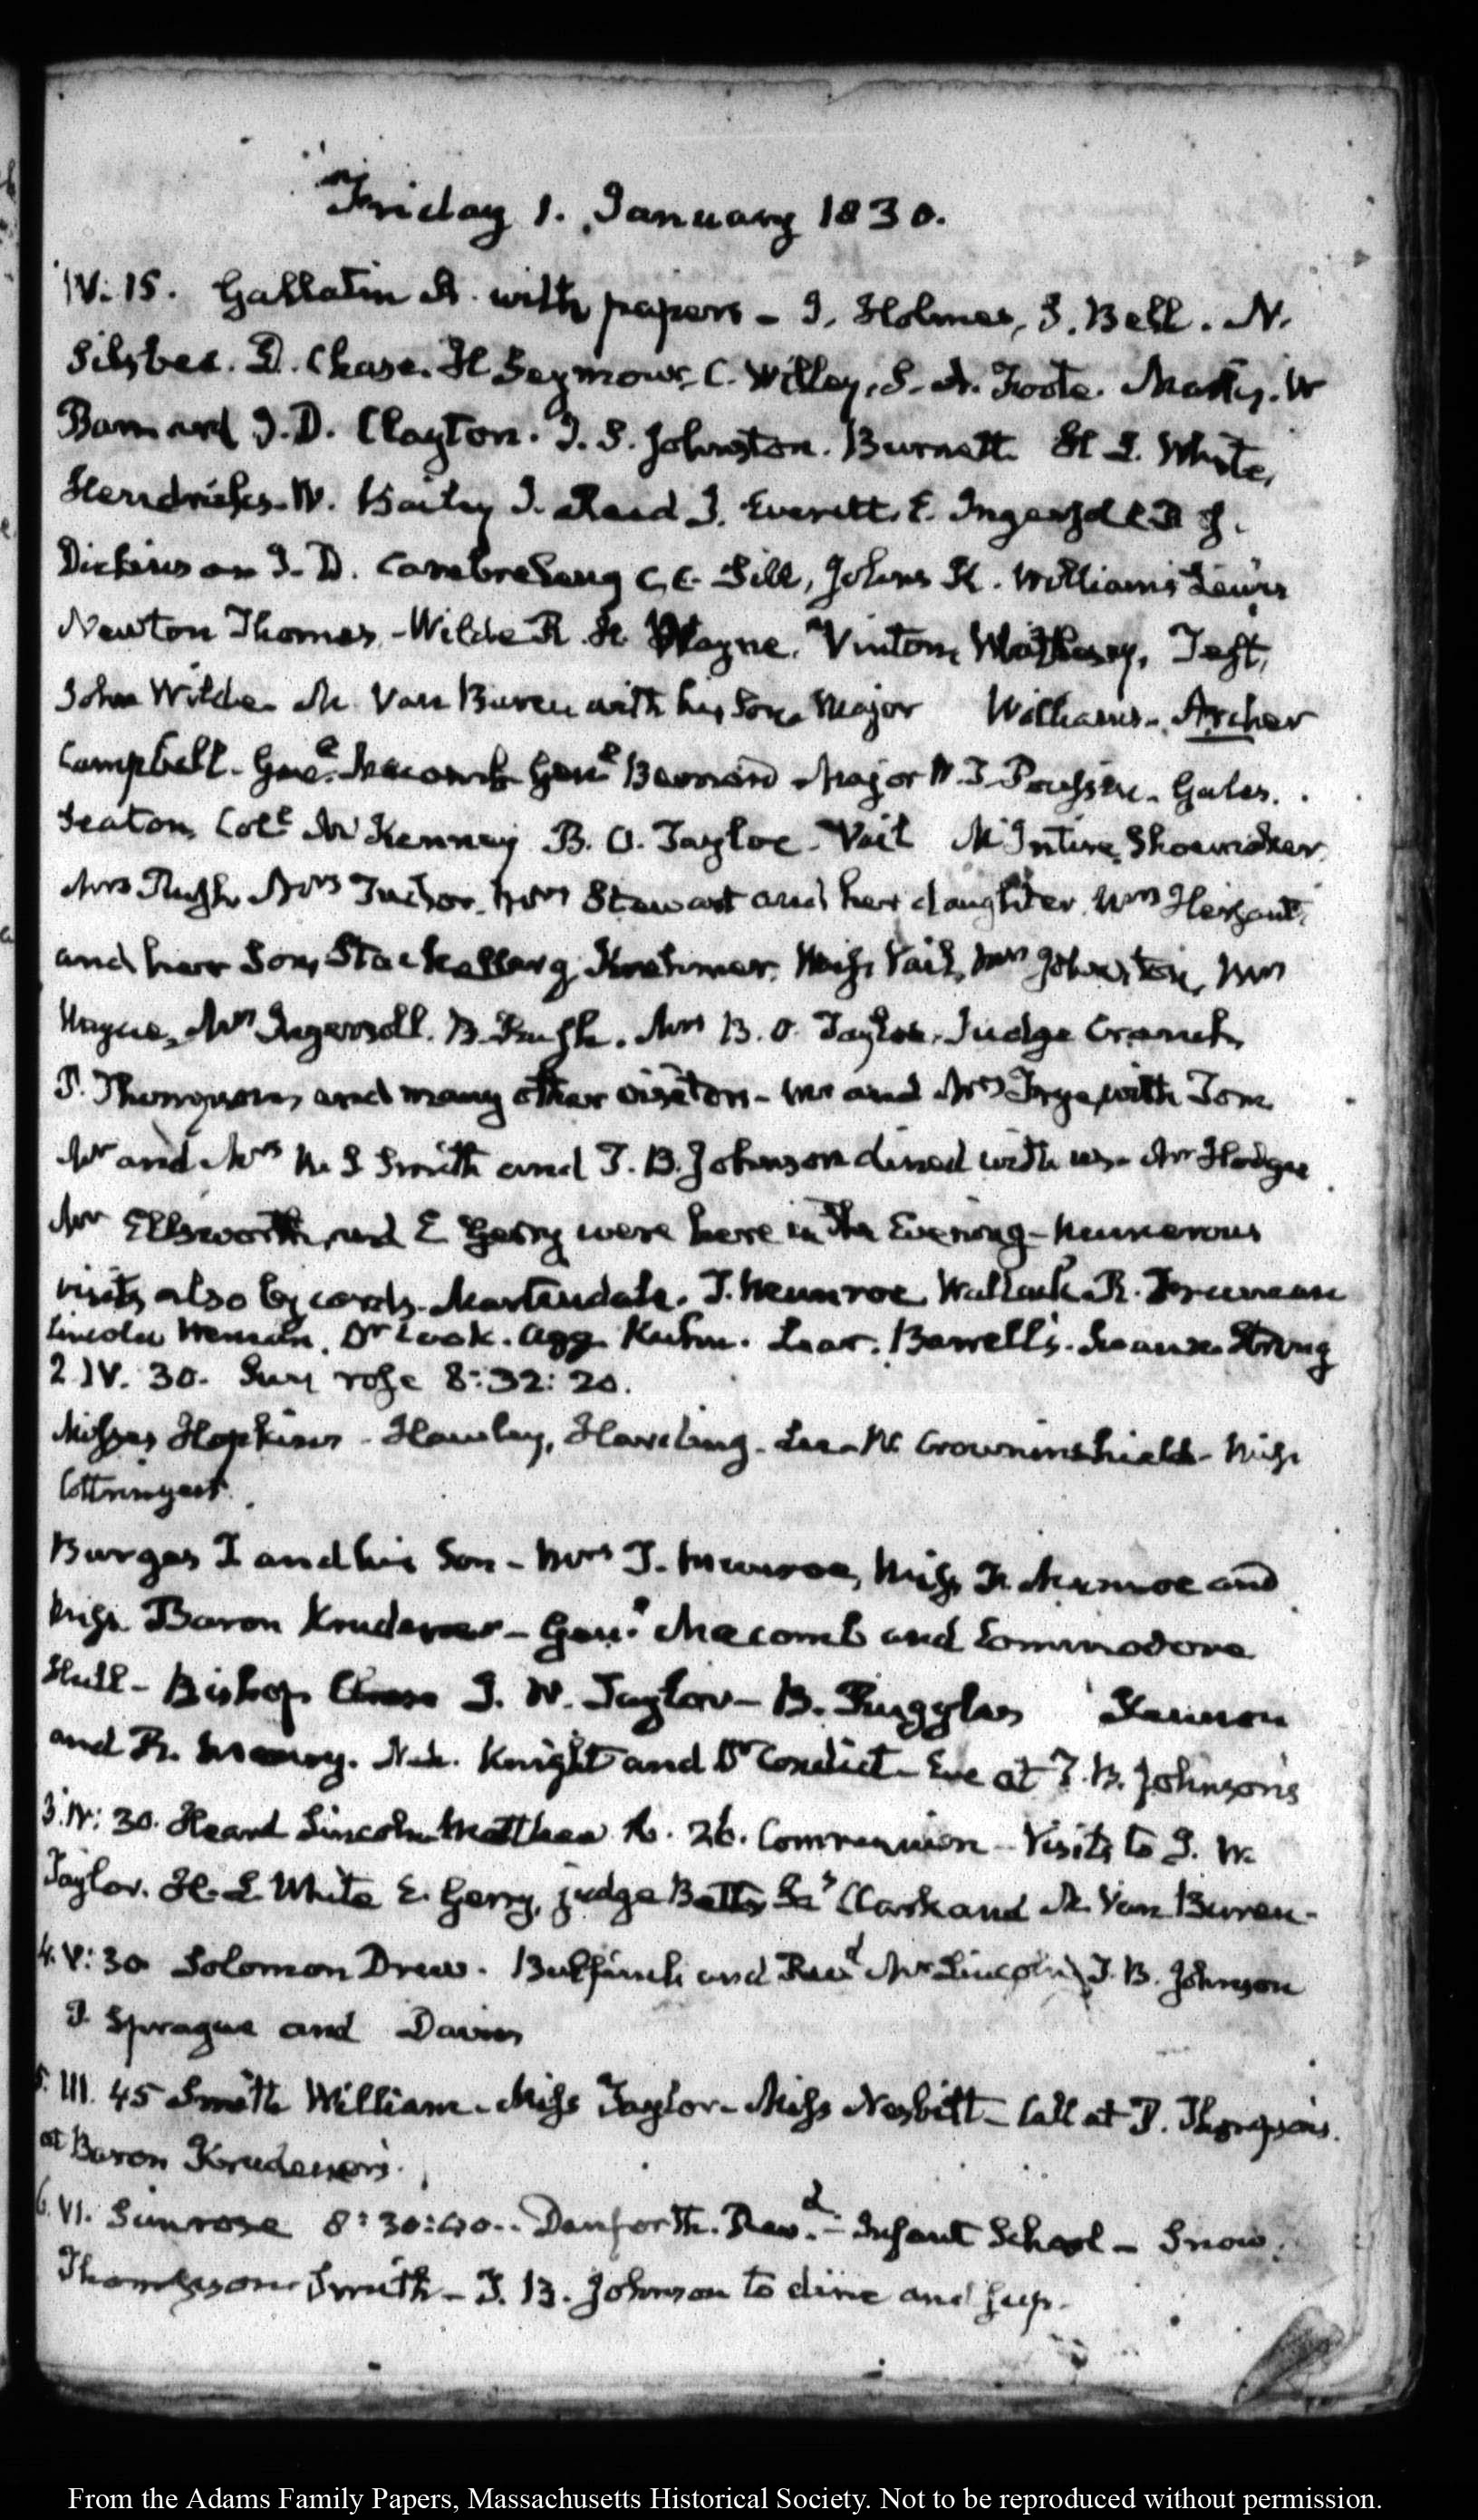 Friday 1. January 1830.
IV: 15. Gallatin A. with papers - J. Holmes, S. Bell. N.
Silsbee. D. Chase. H Seymour, C. Willey, S. A. Foote. Marks. W
Barnard J. D. Clayton. J. S. Johnston. Burnett H L. White,
Hendricks. W. Bailey J. Reed J. Everett. E. Ingersoll R J.
Dickinson J. D. Cambreleng C. C. Sill, Johns K. Williams Lewis
Newton Thomas - Wilde R. H. Wayne. Vinton, Whittlesey, Taft,
John Wilde. M. Van Buren with his Son, Major Williams. Archer
Campbell - Genl. Macomb Genl Bernard Major W. T. Poussin. Gales.
Seaton, Coll McKenney B. O. Tayloe - Vail McIntire, Shoemaker
Mrs Rush, Mrs Tudor, Mrs Stewart and her daughter,
and her Son, Stackelberg, Miss Vail, Mrs Johnston, Mrs
Wayne, Mrs Ingersoll. B. Rush. Mrs B. O. Tayloe, Judge Cranch,
P. Thompson, and many other visitors - Mr and Mrs Frye, with Tom.
Mr and Mrs W. S Smith and T. B. Johnson dined with us - Mr Hodgson
Mr Ellsworth, and E Gerry were here in the Evening - Numerous
visits also by cards. Martindale. J. Munroe Wallach R.
Lincoln Dr Cook. Agg. Kuhn. Lear. Barrells. Strong
2. IV. 30. Sun rose 8:32:20.
Misses Hopkins - Hawley, Harding - Lee - Crowninshield - Miss
Cottringer.
Burges T and his Son - Mrs J. Munroe, Miss F. Munroe and
Miss. Baron Krudener - Genl. Macomb and Commodore
Hull - Bishop Chase J. W. Taylor - B. Ruggles
and R. N. R. Knight and Dr Condict - Eve at T. B. Johnson's
3. IV: 30. Heard Lincoln Matthew 26. Communion - Visits to J. W.
Taylor. H. L White E. Gerry, judge Betts, Clark and M. Van Buren -
4. V: 30 Solomon Drew. Bulfinch and Revd Mr Lincoln, T. B. Johnson
P Sprague and Davis
5. III. 45 Smith William. Miss Taylor - Miss Nesbitt - Call at P. Thompson's.
at Baron Krudener's.
6. VI. Sun rose 8:30:40. Danforth. Revd. - Infant School - Snow.
Smith - T. B. Johnson to dine and sup.
From the Adams Family Papers, Massachusetts Historical Society. Not to be reproduced without permission.